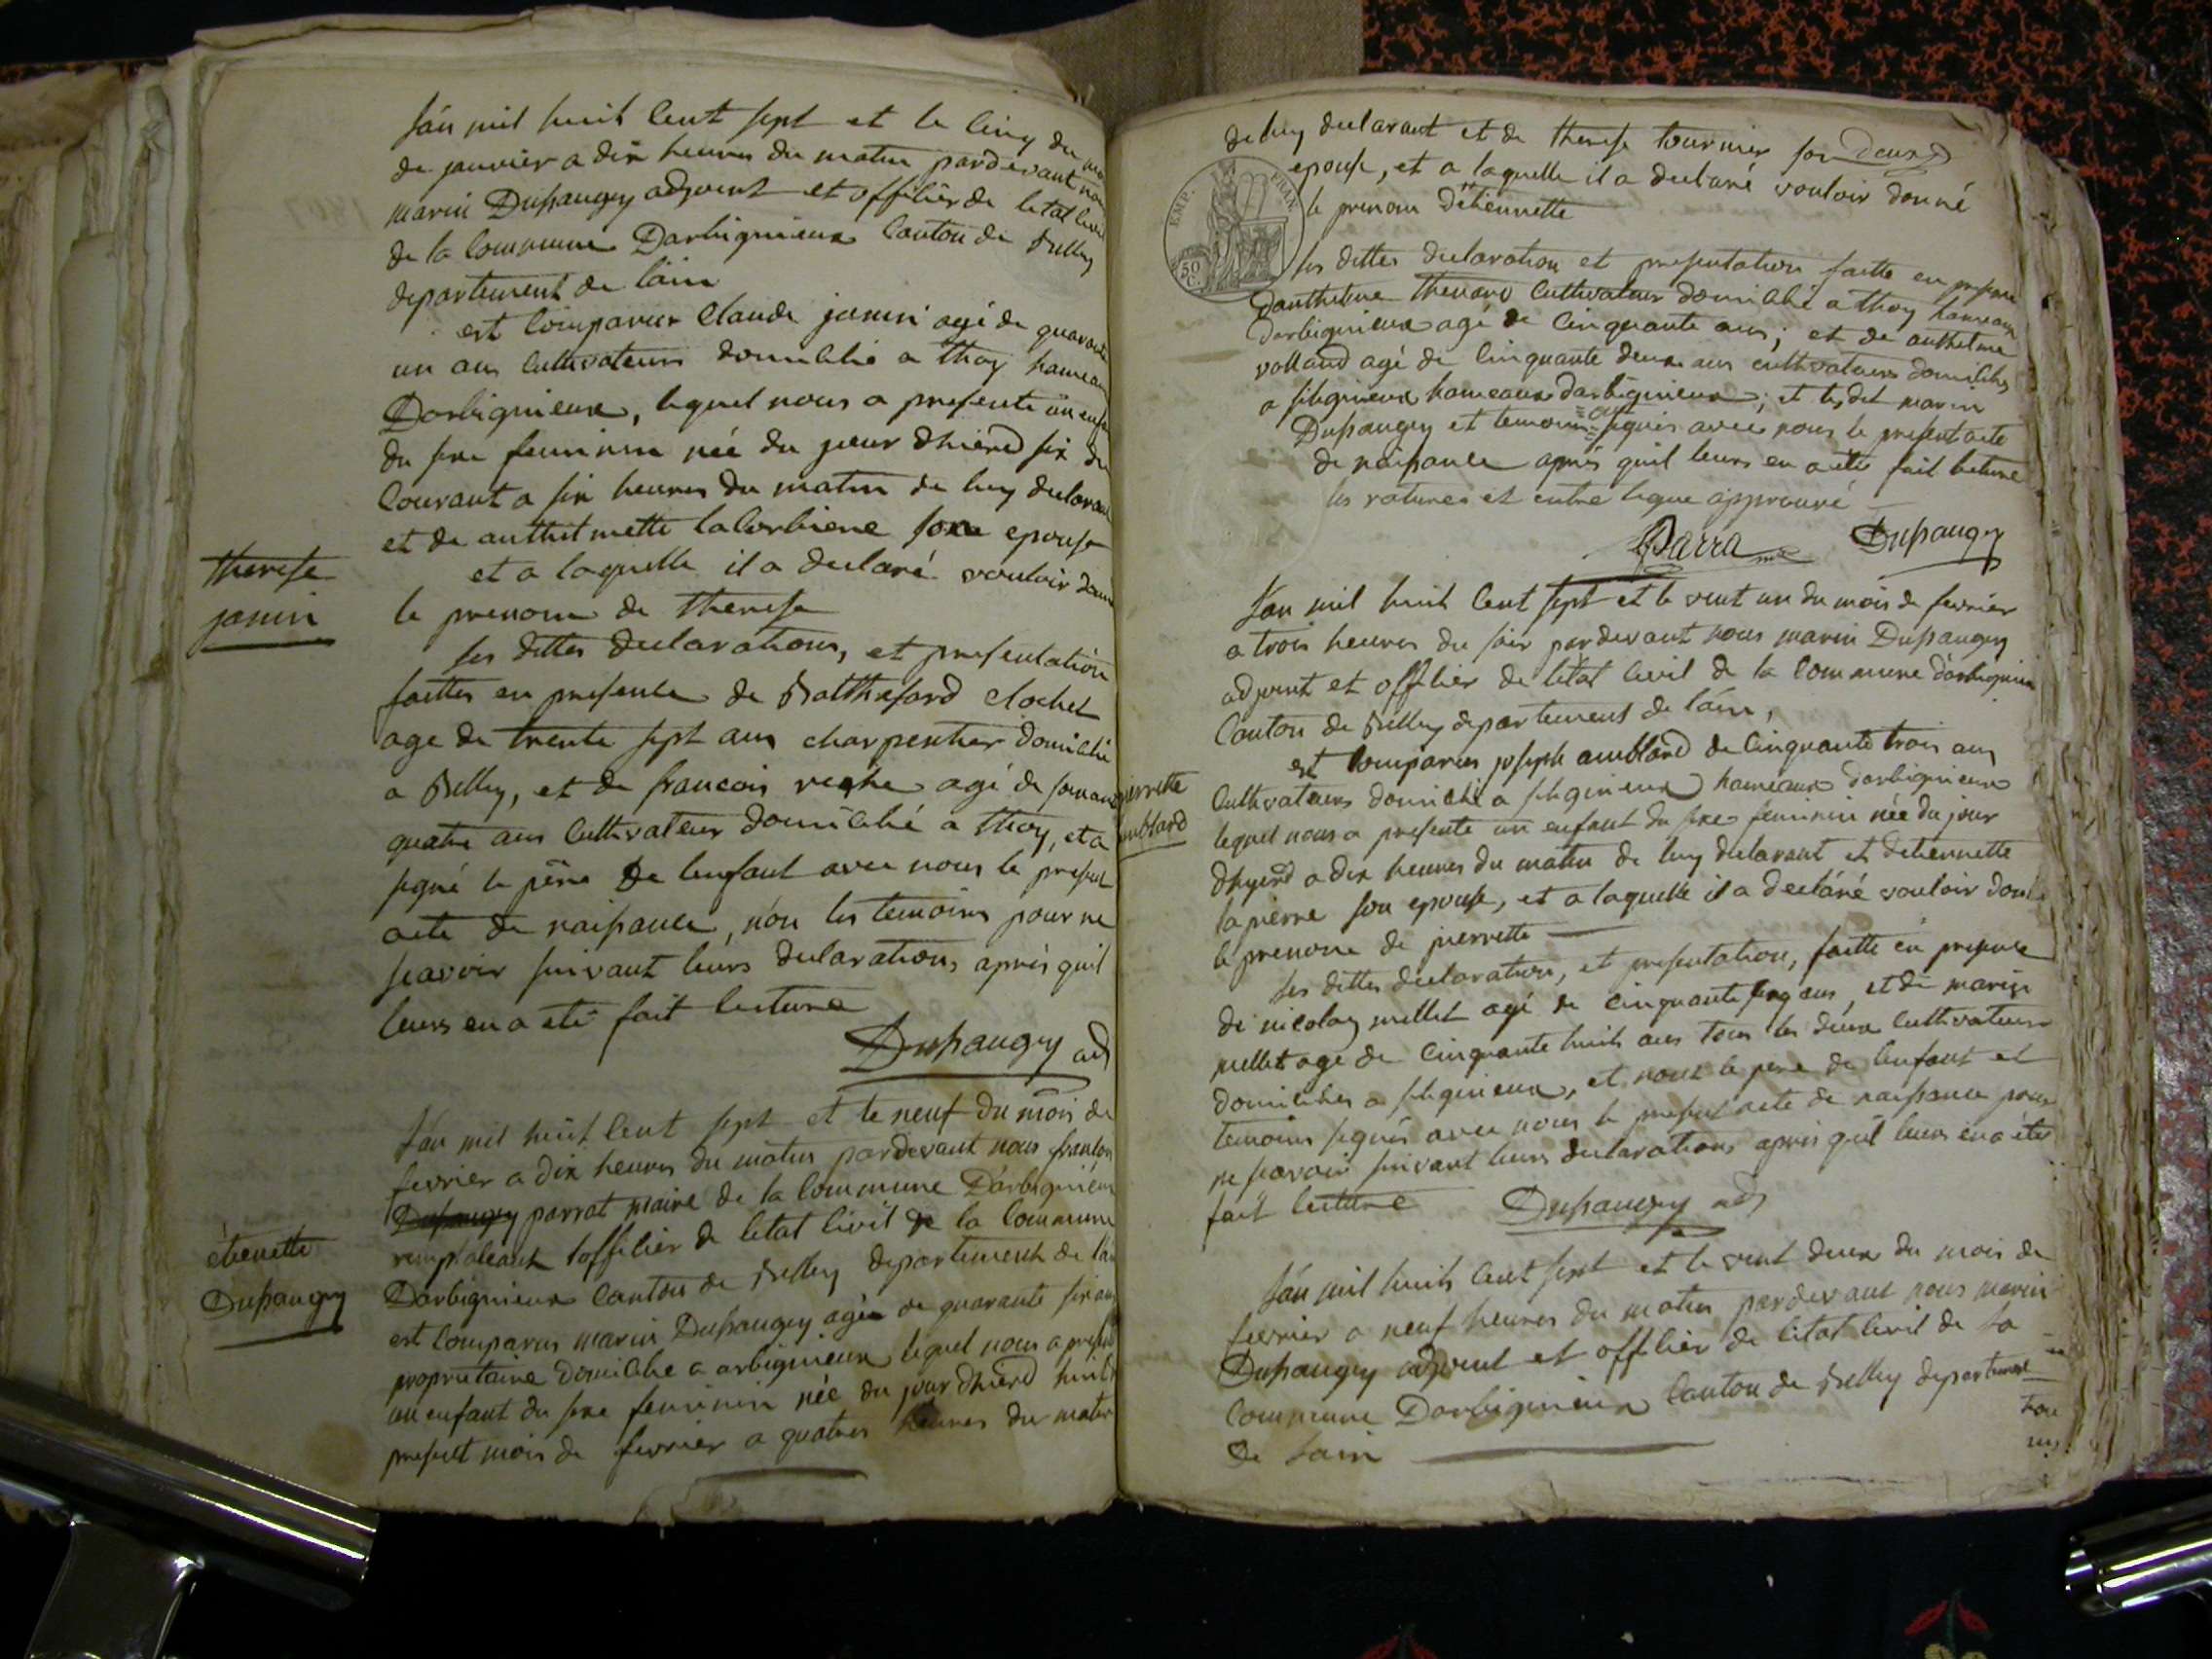 L'an mil huit Cent sept et le Cinq du mois
de janvier a dix heures du matin pardevant nous
marin Dupaugey adjoint et officier de letat civil
de la Commune Darbignieux Canton de Belley
departement de lain
est Comparus Claude janin agé de quarante
un ans Cultivateurs domicilié a thoy hameau
Darbignieux, lequel nous a presenté un enfan
du sexe feminin née du jour dhiere six du
Courant a six heures du matin de luy declarant
et de anthelmette laCorbiere sone epouse
et a laquelle il a declaré vouloir donné
therese
janin
le prenom de therese
les dittes declarations, et presentation
faittes en presence de Clochet
age de trente sept ans charpentier domicilié
a Belley, et de francois agé de soixante
quatre ans Cultivateur domicilié a thoy, et a
signé le père de lenfant avec nous le present
acte de naissance, non les temoins pour ne
scavoir suivant leurs declarations après quil
leurs en a eté fait lecture
Dupaugey adj
L'an mil huit Cent sept et le neuf du mois de
fevrier a dix heures du matin pardevant nous
Dupaugey parrat maire de la Commune Darbignieux
remplaceant lofficier de letat Civil de la Commune
etienette
Dupaugey
Darbignieux Canton de Belley departement de lain
est Comparus marin Dupaugey agée de quarante six ans
propriétaire domicilié a arbignieux lequel nous a presenté
un enfant du sexe feminin née du jour dhiere huit
present mois de fevrier a quatres heures du matin
de luy declarant et de therese tournier son
epouse, et a laquelle il a declaré vouloir donné
le prenom Detiennette
EMP. FRAN.
50
C.
les dittes declaration et presentation faitte en presence
Danthelme thenard Cultivateur domicilié a thoy hameaux
Darbignieux agé de Cinquante ans; et de anthelme
volland agé de Cinquante deux ans cultivateurs domiciliés
a silignieux hameaux darbignieux; et ledit marin
Dupaugey et temoins = ont = signés avec nous le present acte
de naissance après quil leurs en a eté fait lecture
les ratures et entre ligne approuvé
Parra me Dupaugey
L'an mil huit Cent sept et le vent un du mois de fevrier
a trois heures du soir pardevant nous marin Dupaugey
adjoint et officier de létat Civil de la Commune darbignieux
Canton de Belley departement de lain,
pierrette
amblard
est Comparus joseph amblard de Cinquante trois ans
Cultivateurs domicilié a silignieux hameaux darbignieux
lequel nous a presenté un enfant du sexe feminin née du jour
dhyere a dix heures du matin de luy declarant et detiennette
lapierre son epouse, et a laquelle il a declaré vouloir donné
le prenom de pierrette
les dittes declaration, et presentation, faitte en presence
de nicolas mellet agé de cinquante ans, et de marin
mellet age de Cinquante huit ans tous les deux Cultivateurs
domiciliés a silignieux, et nont le pere de lenfant et
temoins signés avec nous le present acte de naissance pour
ne scavoir suivant leurs declarations après quil leurs en a étés
fait lecture Dupaugey adj
L'an mil huit Cent sept et le vent deux du mois de
fevrier a neuf heures du matin pardevant nous marin
Dupaugey adjoint et officier de létat Civil de la
Commune Darbignieux Canton de Belley departement
de lain